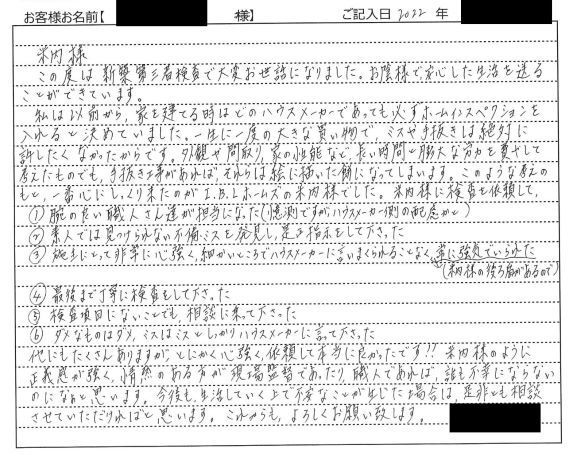 お客様お名前【 様】 ご記入日 2022 年
米内様
この度は新築第三者検査で大変お世話になりました。お陰様で安心した生活を送る
ことができています。
私は以前から、家を建てる時はどのハウスメーカーであっても必ずホームインスペクションを
入れると決めていました。一生に一度の大きな買い物で、ミスや手抜きは絶対に
許したくなかったからです。外観や間取り、家の性能など、長い時間と膨大な労力を費やして
考えたものでも、手抜き工事があれば、それらは絵に描いた餅になってしまいます。このような考えの
もと、一番心にしっくり来たのがI.B.Lホームズの米内様でした。米内様に検査を依頼して、
①腕の良い職人さん達が担当になった(憶測ですがハウスメーカー側の配慮かと)
②素人では見つけられない不備・ミスを発見し、是正指示をして下さった
③施主にとって非常に心強く、細かいところでハウスメーカーに言いまくられることなく、常に強気でいられた
(米内様の後ろ盾があるので)
④最後まで丁寧に検査をして下さった
⑤検査項目にないことでも、相談に乗って下さった
⑥ダメなものはダメ、ミスはミスとしっかりハウスメーカーに言って下さった
他にもたくさんありますが、とにかく心強く、依頼して本当に良かったです!! 米内様のように
正義感が強く、情熱のある方が現場監督であったり、職人であれば、誰も不幸にならない
のになぁと思います。今後も、生活していく上で不安なことが生じた場合は、是非とも相談
させていただければと思います。これからも、よろしくお願い致します。